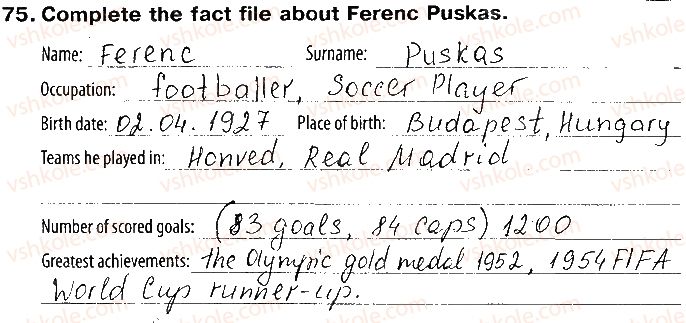 75. Complete the fact file about Ferenc Puskas.
Name: Ferenc Surname: Puskas
Occupation: footballer, Soccer Player
Birth date: 02.04.1927 Place of birth: Budapest, Hungary
Teams he played in: Honved, Real Madrid
Number of scored goals: (83 goals, 84 caps) 1200
Greatest achievements: the Olympic gold medal 1952, 1954 FIFA
World Cup runner-up.